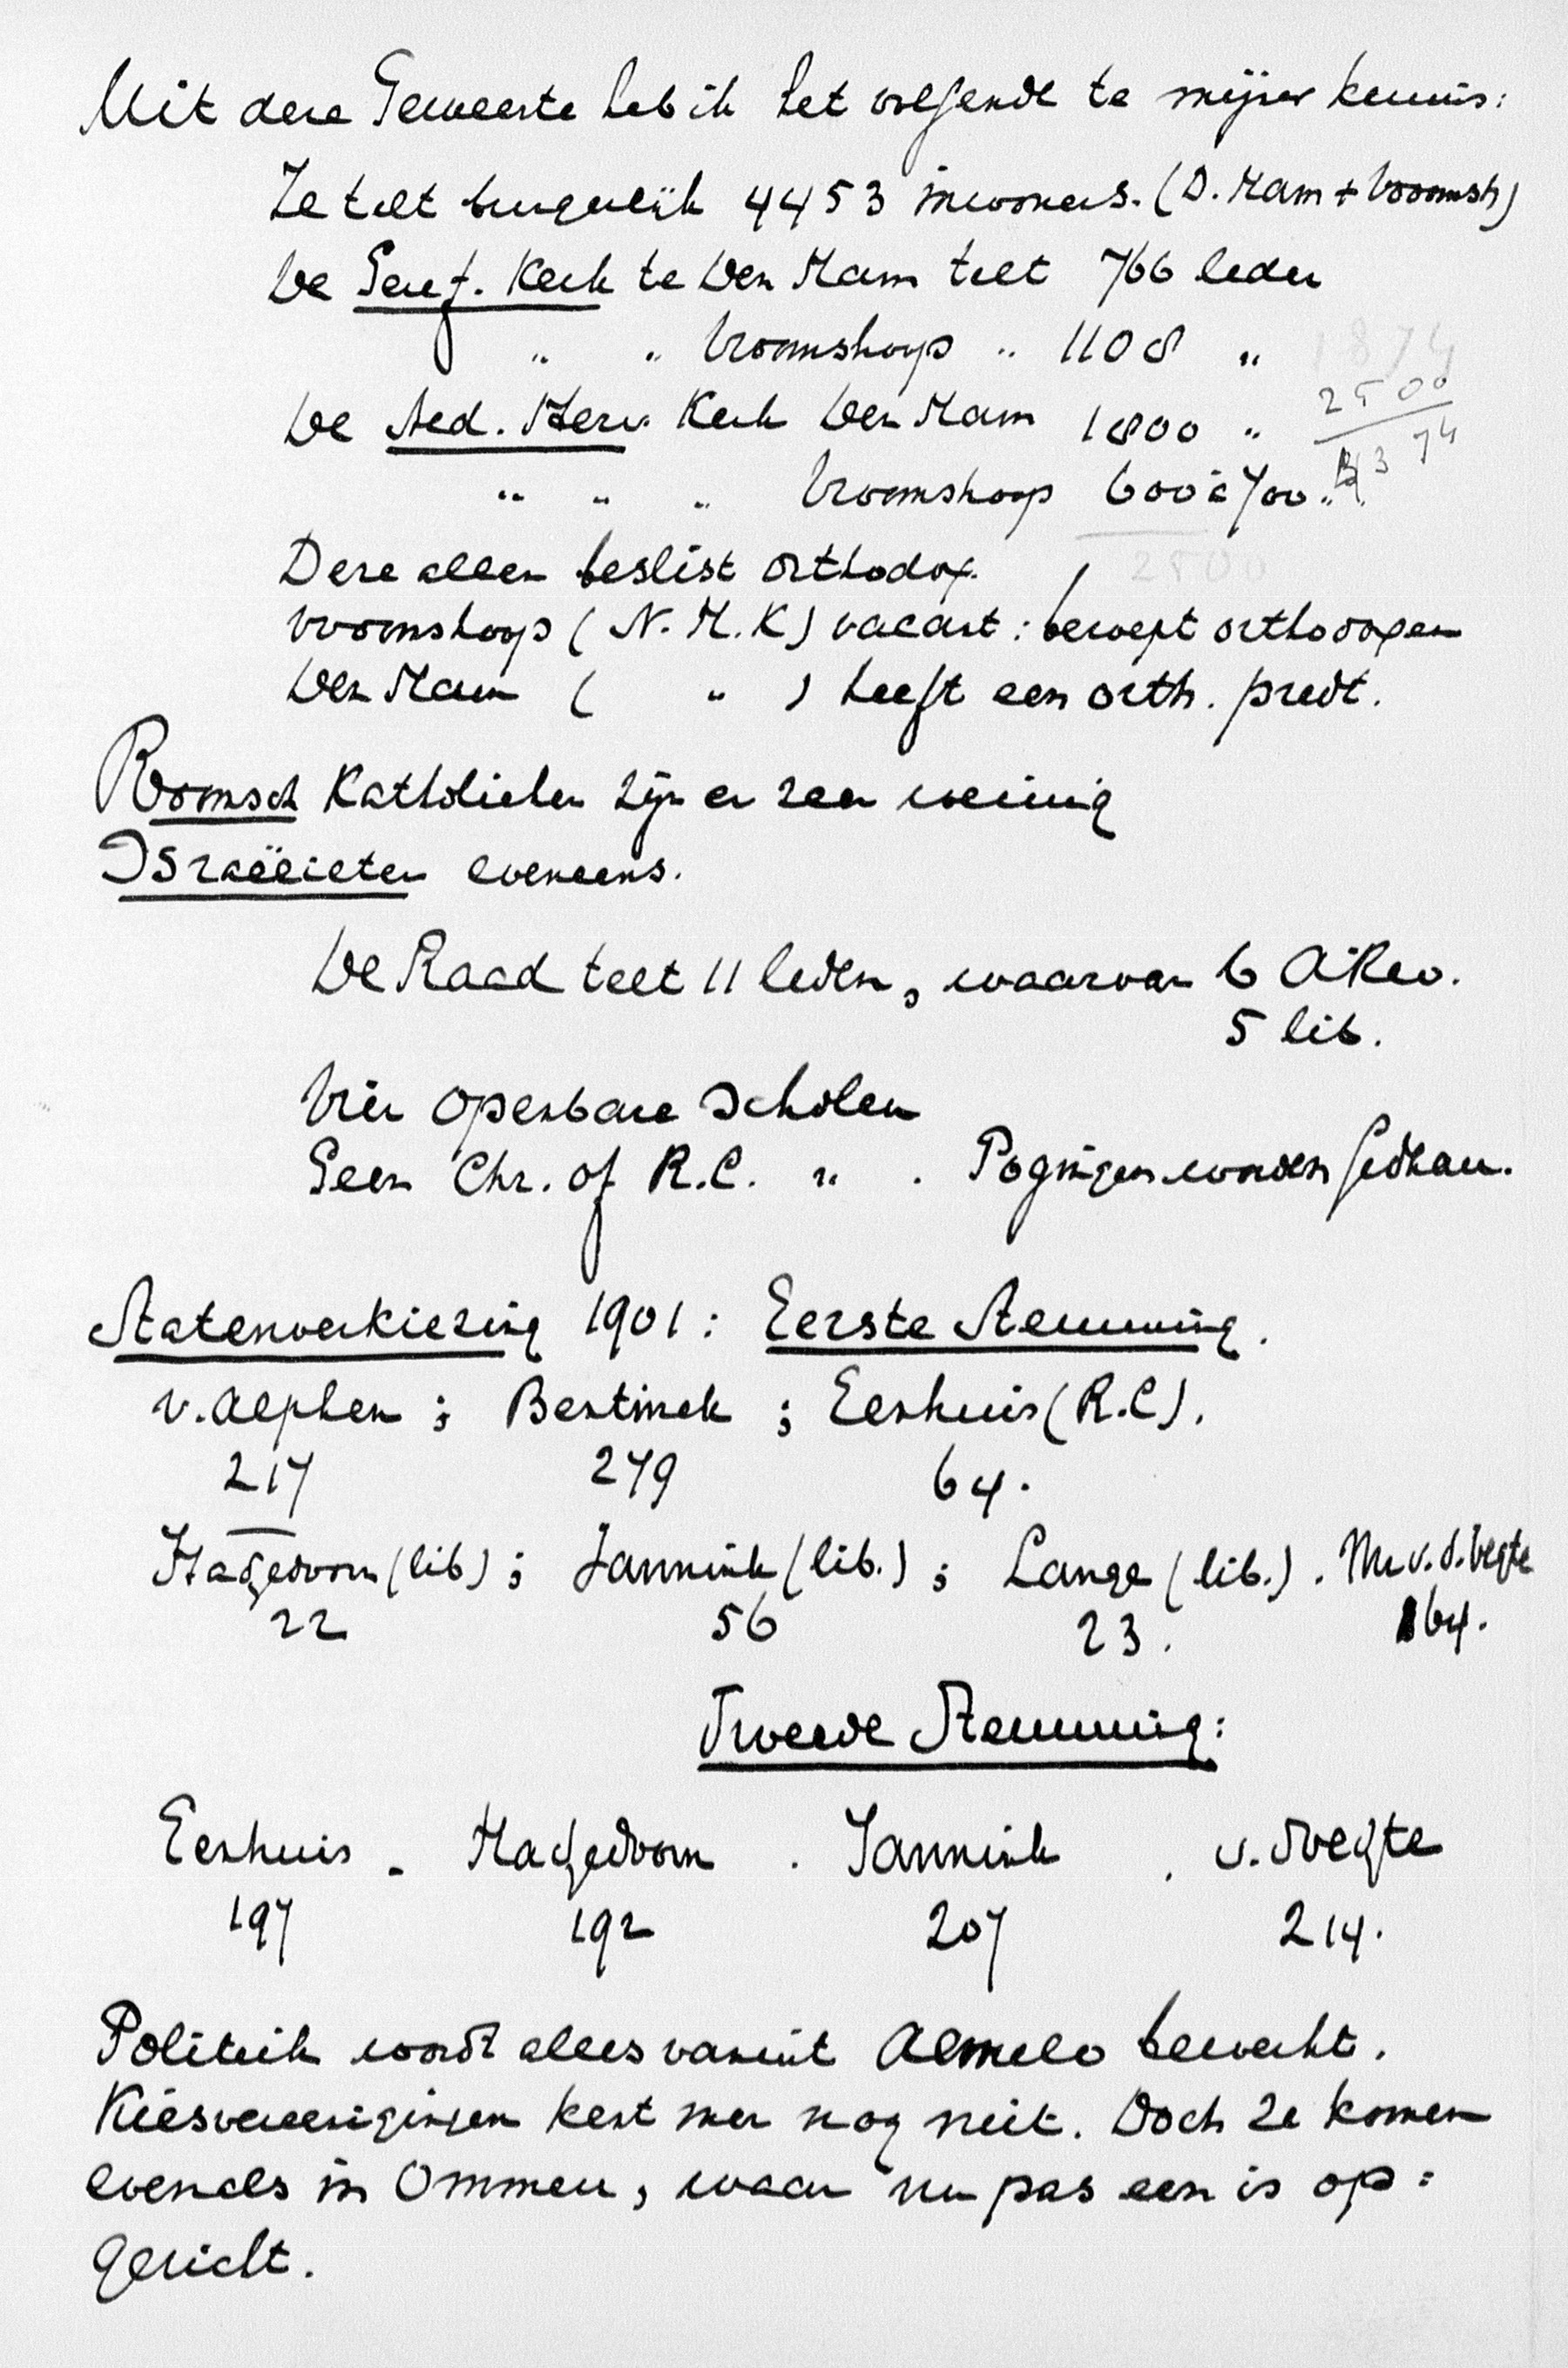 Uit deze Gemeente heb ik het volgende te mijner kennis:
Ze telt burgerlijk 4453 inwoners. (D. Ham + Vroomsh)
De Geref. Kerk te Den Ham telt 766 leden
" " Vroomshoop " 1108 " 1874
De Ned. Herv. Kerk Den Ham 1800 " 2500
4374
" " " Vroomshoop 600 à 700 "
Deze allen beslist orthodox. 2500
Vroomshoop (N.H.K) vacant: beroept orthodoxen
Den Ham ( " ) heeft een orth. predt.
Roomsch Katholieken zijn er zeer weinig
Israëlieten eveneens.
De Raad telt 11 leden, waarvan 6 A.Rev.
5 lib.
Vier openbare scholen
Geen Chr. of R.C. " . Pogingen worden gedaan.
Statenverkiezing 1901: Eerste Stemming.
v. Alphen ; Bentinck ; Eeshuis (R.C).
217 279 64.
Hagedoorn (lib) ; Jannink (lib.) ; Lange (lib.) . Mr v. d. Vegte
22 56 23. 164.
Tweede Stemming:
Eeshuis . Hagedoorn . Jannink . v. d Vegte
197 192 207 214.
Politiek wordt alles vanuit Almelo bewerkt.
Kiesvereenigingen kent men nog niet. Doch ze komen
evenals in Ommen, waar nu pas een is op=
gericht.